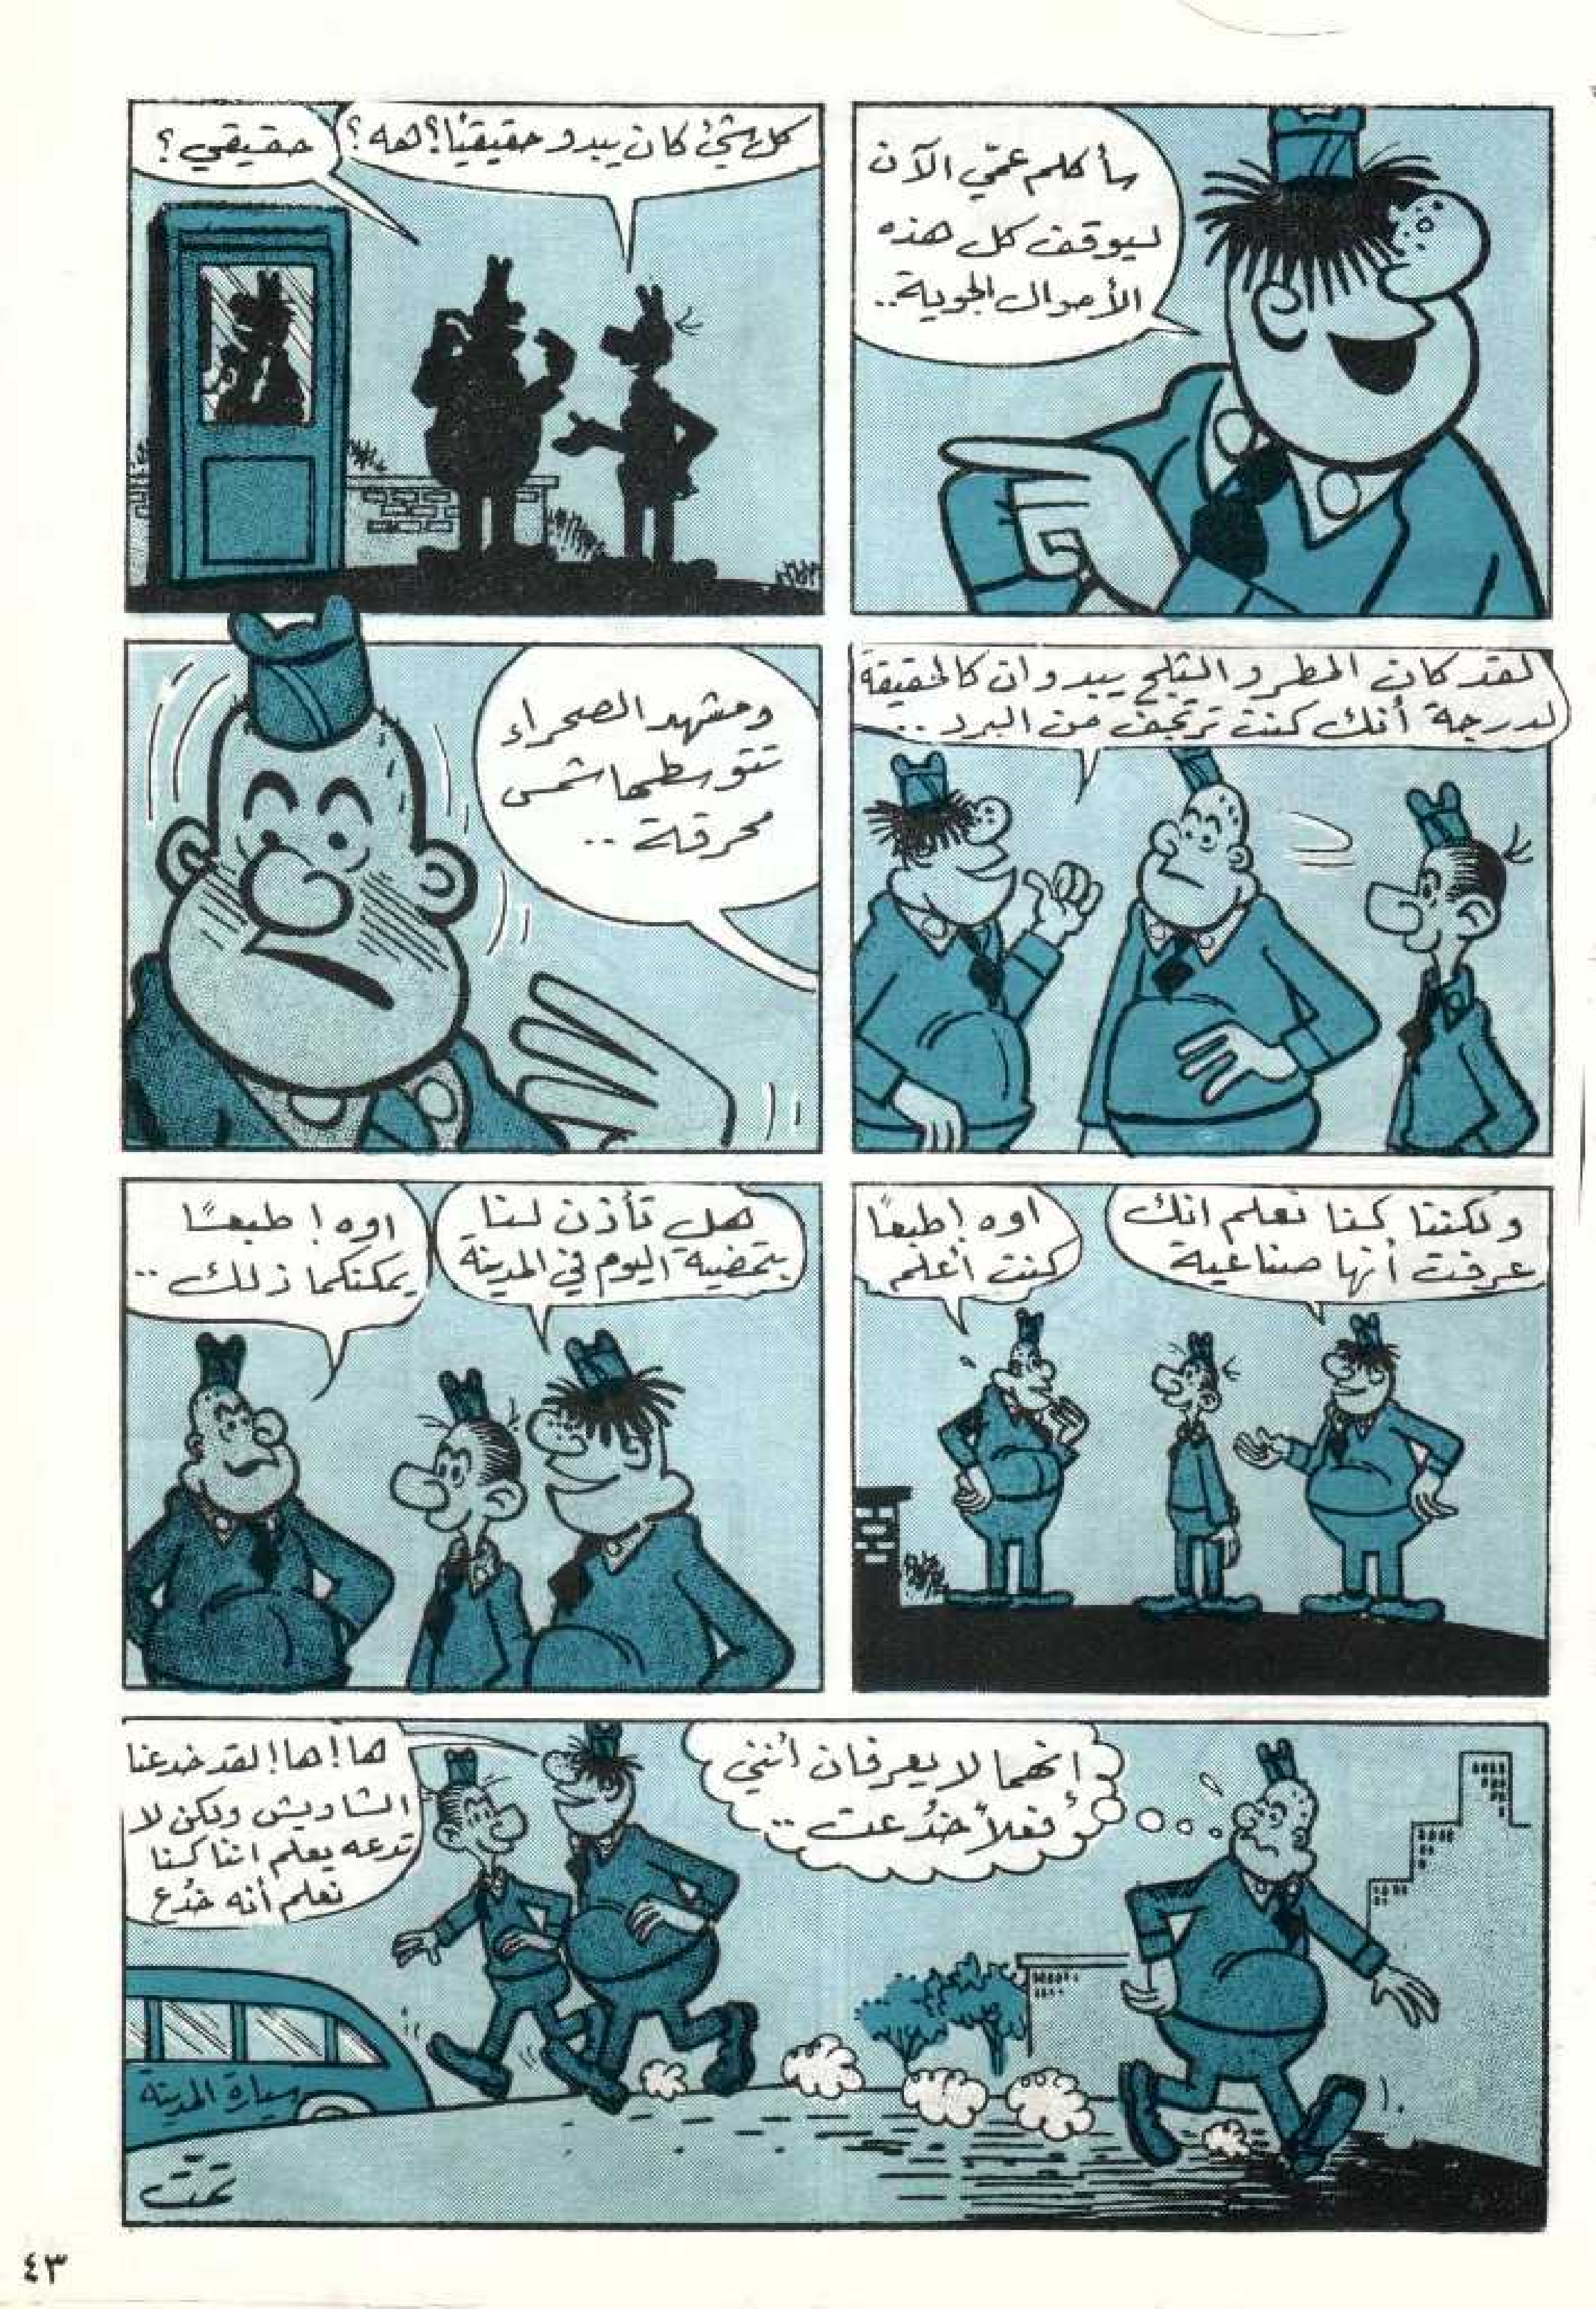 سأكلم عمّي الآن
ليوقف كل هذه
الأحوال الجوية..
كل شيء كان يبدو حقيقيًا؟ هه؟
حقيقي؟
لقد كان المطر والثلج يبدوان كالحقيقة
لدرجة أنك كنت ترتجف من البرد ..
ومشهد الصحراء
تتوسطها شمس
محرقة ..
ولكننا كنا نعلم انك
عرفت أنها صناعية
اوه! طبعًا
كنت أعلم
هل تأذن لنا
بتمضية اليوم في المدينة
اوه! طبعًا
يمكنكما ذلك ..
إنهما لا يعرفان أنني
فعلاً خُدعت ..
ها! ها! لقد خدعنا
الشاويش ولكن لا
تدعه يعلم اننا كنا
نعلم أنه خُدع
سيارة المدينة
تمت
٤٣